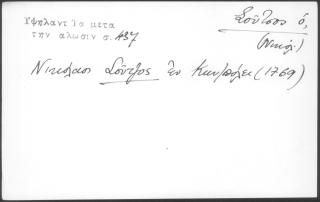 Ὑψηλαντ Τα μετα
την αλωσιν σ. 437
Σοῦτσος ὁ,
(Νικόλ.)
Νικόλαος Σοῦτζος ἐν Κων/πόλει (1769)